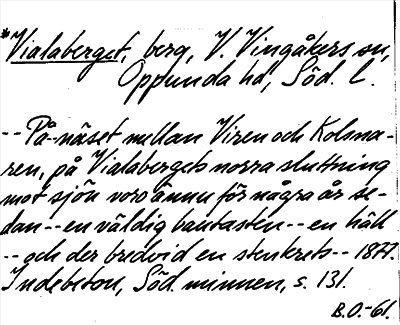 *Vialaberget, berg, V. Vingåkers sn,
Oppunda hd, Söd. l.
-- På -- näset mellan Viren och Kolsna-
ren, på Vialabergets norra sluttning
mot sjön voro ännu för några år se-
dan -- en väldig bautasten -- en häll
-- och der bredvid en stenkrets -- 1877.
Indebetou, Söd. minnen, s. 131.
B.O. -61.